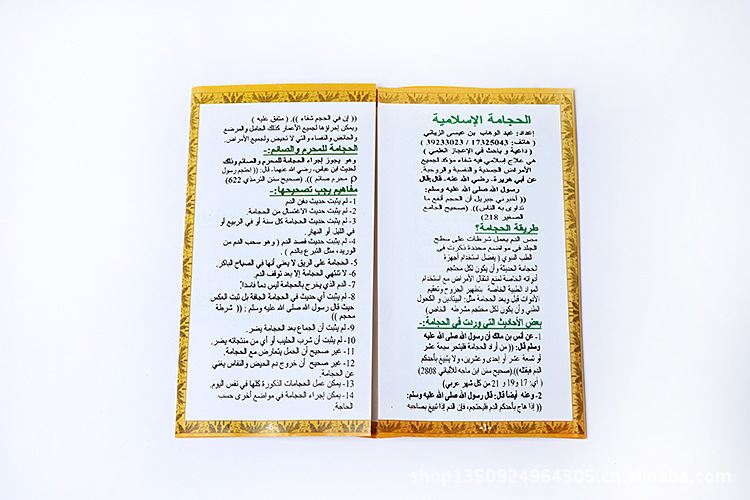 الحجامة الإسلامية
إعداد: عبد الوهاب بن عيسى الزياني
( هاتف: 17325043 / 39233023 )
( داعية و باحث في الإعجاز العلمي )
هي علاج إسلامي فيه شفاء مؤكد لجميع
الأمراض الجسدية والنفسية والروحية.
عن أبي هريرة. رضي الله عنه. قال: قال
رسول الله صلى الله عليه وسلم:
(( أخبرني جبريل أن الحجم أنفع ما
تداوى به الناس)). (صحيح الجامع
الصغير 218)
طريقة الحجامة؟
مص الدم بعمل شرطات على سطح
الجلد في مواضع محددة ذكرت في
الطب النبوي ( يفضل استخدام أجهزة
الحجامة الحديثة وأن يكون لكل محتجم
أدواته الخاصة لمنع انتقال الأمراض مع استخدام
المواد الطبية الخاصة بتطهير الجروح وتعقيم
الأدوات قبل وبعد الحجامة مثل: البيتادين و الكحول
الطبي وأن يكون لكل محتجم مشرطه الخاص)
بعض الأحاديث التي وردت في الحجامة:-
1- عن أنس بن مالك أن رسول الله صلى الله عليه
وسلم قال: (( من أراد الحجامة فليتحر سبعة عشر
أو تسعة عشر أو إحدى وعشرين، ولا يتبيغ بأحدكم
الدم فيقتله)).(صحيح سنن ابن ماجه للألباني 2808)
( أي: 17 و19 و 21 من كل شهر عربي)
2- وعنه أيضاً قال: قال رسول الله صلى الله عليه وسلم:
(( إذا هاج بأحدكم الدم فليحتجم، فإن الدم إذا تبيغ بصاحبه
-1-
(( إن في الحجم شفاء )). ( متفق عليه )
ويمكن إجراؤها لجميع الأعمار كذلك الحامل والمرضع
والحائض والنفساء والتي لا تحيض ولجميع الأمراض.
الحجامة للمحرم والصائم:-
وهو يجوز إجراء الحجامة للمحرم والصائم وذلك
لحديث ابن عباس. رضي الله عنهما. قال: (( احتجم رسول
ρ محرم صائم )). (صحيح سنن الترمذي 622)
مفاهيم يجب تصحيحها:-
1- لم يثبت حديث دفن الدم
2- لم يثبت حديث الاغتسال من الحجامة.
3- لم يثبت حديث الحجامة كل سنة أو في الربيع أو
في الليل أو النهار.
4- لم يثبت حديث فصد الدم ( وهو سحب الدم من
الوريد، مثل التبرع بالدم ) .
5- الحجامة على الريق لا يعني أنها في الصباح الباكر.
6- لا تنتهي الحجامة إلا بعد توقف الدم.
7- الدم الذي يخرج بالحجامة ليس دماً فاسداً.
8- لم يثبت أي حديث في الحجامة الجافة بل ثبت العكس
حيث قال رسول الله صلى الله عليه وسلم : (( شرطة
محجم ))
9- لم يثبت أن الجماع بعد الحجامة يضر.
10- لم يثبت أن شرب الحليب أو أي من منتجاته يضر.
11- غير صحيح أن الحمل يتعارض مع الحجامة.
12- غير صحيح أن خروج دم الحيض والنفاس يغني
عن الحجامة.
13- يمكن عمل الحجامات المذكورة كلها في نفس اليوم.
14- يمكن إجراء الحجامة في مواضع أخرى حسب
الحاجة.
-6-
shop1350924964305.cn.alibaba.com